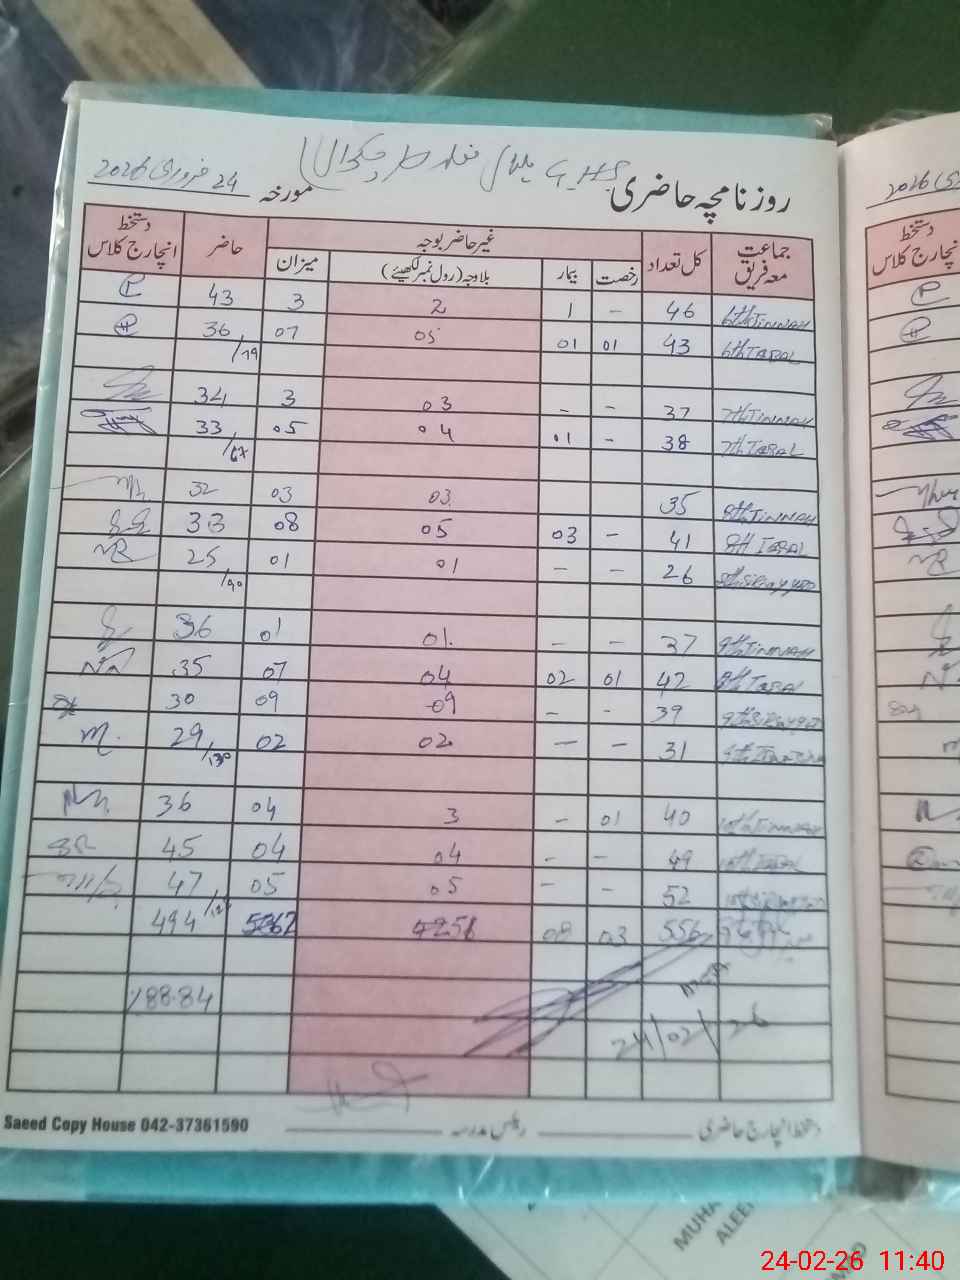 G.H.S
روزنامچہ حاضری مورخہ 24 فروری 2026
جماعت معہ فریق کل تعداد غیر حاضر بوجہ حاضر دستخط انچارج کلاس
رخصت بیمار بلاوجہ (رول نمبر لکھیئے) میزان
6th JINNAH 46 - 1 2 3 43
6th IQBAL 43 01 01 05 07 36
/79
7th JINNAH 37 - - 03 3 34
7th IQBAL 38 - 01 04 05 33
/67
8th JINNAH 35 03 03 32
8th IQBAL 41 - 03 05 08 33
26 - - 01 01 25
/90
9th JINNAH 37 - - 01 01 36
IQBAL 42 01 02 04 07 35
39 - - 09 09 30
31 - - 02 02 29
/130
10th JINNAH 40 01 - 3 04 36
10th IQBAL 49 - - 04 04 45
52 - - 05 05 47
/128
556 03 08 51 62 494
%88.84
24/02/26
دستخط انچارج حاضری رئیس مدرسہ
Saeed Copy House 042-37361590
2026
دستخط
انچارج کلاس
MUHA
ALEE
24-02-26 11:40